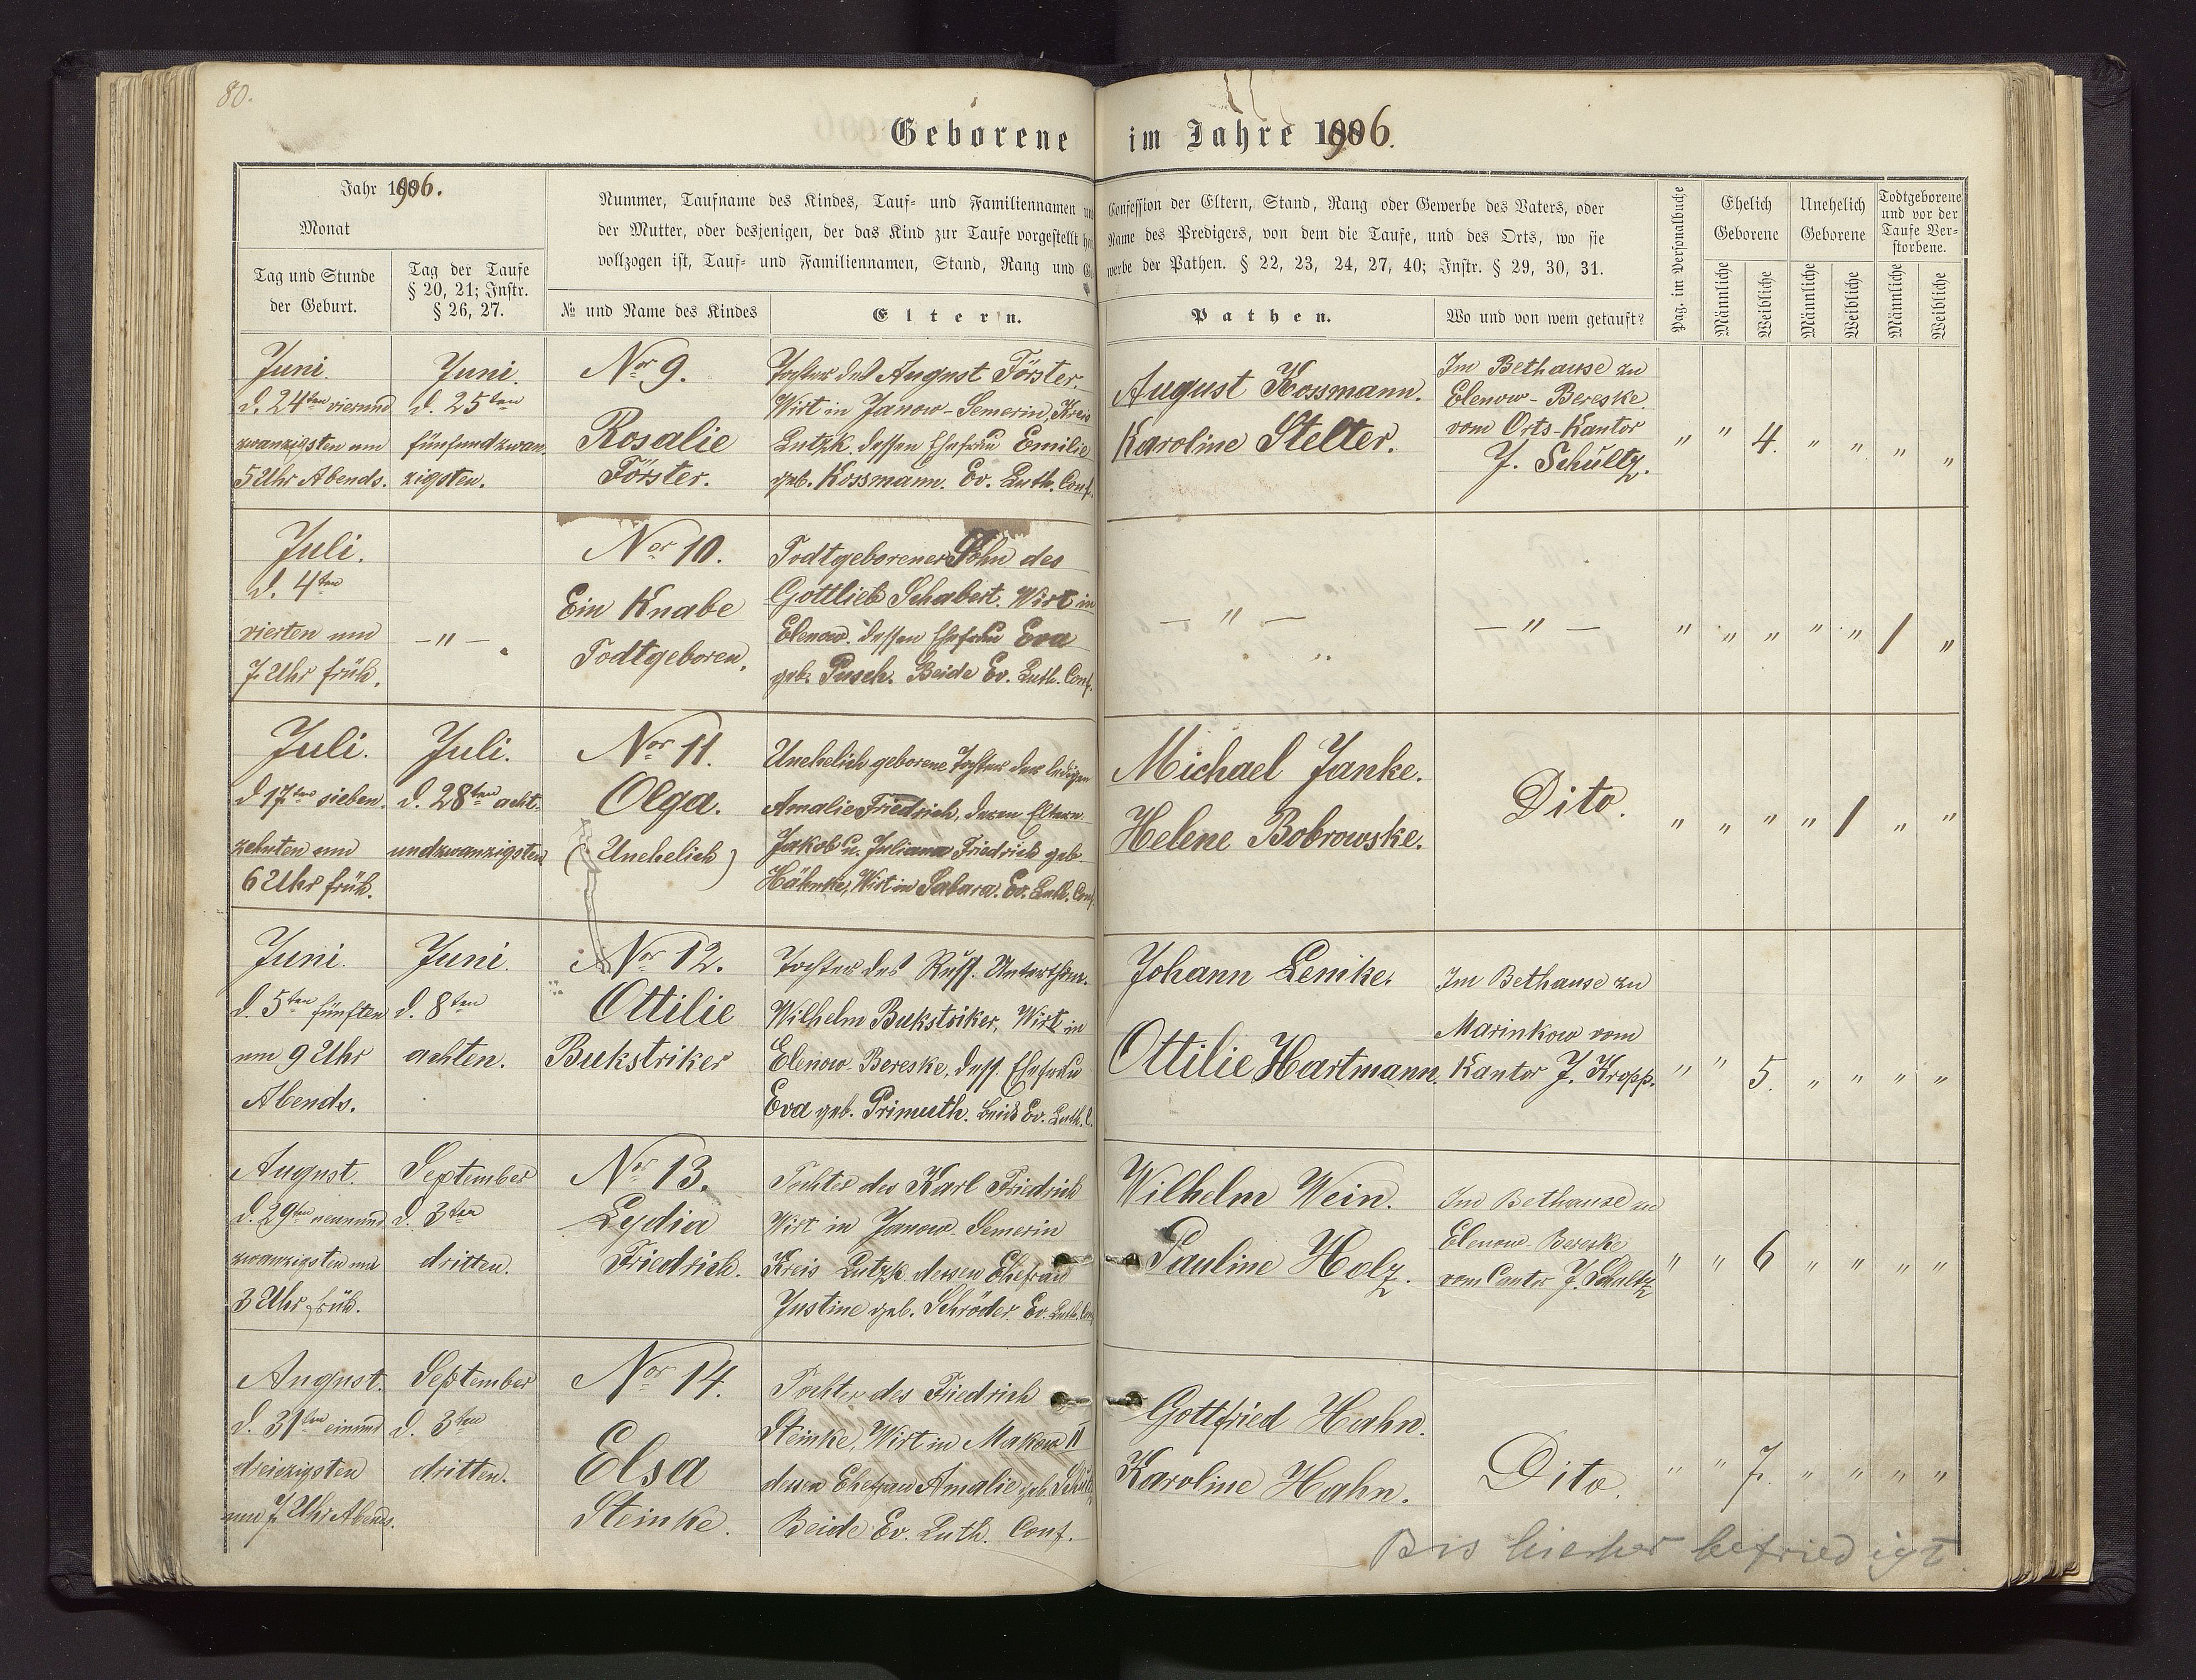 80.
Geborene im Jahre 1906.
Jahr 1906.
Monat
Tag und Stunde
der Geburt.
Tag der Taufe
§ 20, 21; Instr.
§ 26, 27.
Nummer, Taufname des Kindes, Tauf- und Familiennamen
der Mutter, oder desjenigen, der das Kind zur Taufe vorgestellt
vollzogen ist, Tauf- und Familiennamen, Stand, Rang und
№ und Name des Kindes
Eltern.
Confession der Eltern, Stand, Rang oder Gewerbe des Vaters, oder
Name des Predigers, von dem die Taufe, und des Orts, wo sie
werbe der Pathen. § 22, 23, 24, 27, 40; Instr. § 29, 30, 31.
Pathen.
Wo und von wem getauft?
Pag. im Personalbuche
Ehelich
Geborene
Unehelich
Geborene
Todtgeborene
und vor der
Taufe Ver-
storbene.
Männliche
Weibliche
Männliche
Weibliche
Männliche
Weibliche
Juni.
d. 24ten vierund
zwanzigsten um
5 Uhr Abends.
Juni.
d. 25ten
fünfundzwan-
zigsten.
Nor 9.
Rosalie
Förster.
Tochter des August Förster,
Wirt in Janow-Semerin, Kreis
Lutzk. dessen Ehefrau Emilie
geb. Kossmann. Ev. Luth. Conf.
August Kossmann.
Karoline Stelter.
Im Bethause zu
Elenow-Bereske
vom Orts-Kantor
J. Schultz.
" " 4. " " " "
Juli.
d. 4ten
vierten um
7 Uhr früh.
— " —
Nor 10.
Ein Knabe
Todtgeboren.
Todtgeborener Sohn des
Gottlieb Schabert. Wirt in
Elenow. dessen Ehefrau Eva
geb. Pusch. Beide Ev. Luth. Conf.
— " —
— " —
" " " " " / "
Juli.
d 17ten sieben-
zehnten um
6 Uhr früh.
Juli.
d. 28ten acht-
undzwanzigsten
Nor 11.
Olga.
(Unehelich)
Unehelich geborene Tochter der ledigen
Amalie Friedrich, deren Eltern
Jakob u. Juliana Friedrich geb.
Hähnke, Wirt in Sabara. Ev. Luth. Conf.
Michael Janke.
Helene Bobrowske.
Dito.
" " " " / " "
Juni.
d. 5ten fünften
um 9 Uhr
Abends.
Juni.
d. 8ten
achten.
Nor 12.
Ottilie
Bukstriker
Tochter des Russ. Unterthan.
Wilhelm Bukstriker, Wirt in
Elenow-Bereske, dess. Ehefrau
Eva geb. Primuth. beide Ev. Luth. C.
Johann Lemke.
Ottilie Hartmann.
Im Bethause zu
Marinkow vom
Kantor J. Kropp.
" " 5. " " " "
August.
d. 29ten neunund
zwanzigsten um
3 Uhr früh.
September
d. 3ten
dritten.
Nor 13.
Lydia
Friedrich.
Tochter des Karl Friedrich
Wirt in Janow-Semerin
Kreis Lutzk. dessen Ehefrau
Justine geb. Schröder Ev. Luth. Con
Wilhelm Wein.
Pauline Holz.
Im Bethause zu
Elenow-Bereske
vom Cantor J. Schultz
" " 6 " " " "
August.
d. 31ten einund
dreizigsten
um 7 Uhr Abends.
September
d. 3ten
dritten.
Nor 14.
Elsa
Steinke.
Tochter des Friedrich
Steinke, Wirt in Makow II
dessen Ehefrau Amalie geb.
Beide Ev. Luth. Conf.
Gottfried Hahn.
Karoline Hahn.
Dito.
" " 7. " " " "
Bis hierher befriedigt